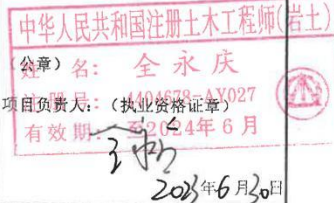 中华人民共和国注册土木工程师(岩土)
(公章)
姓名: 全永庆
注册号: 4404678-AY027
项目负责人: (执业资格证章)
有效期: 至2024年6月
2023年6月30日